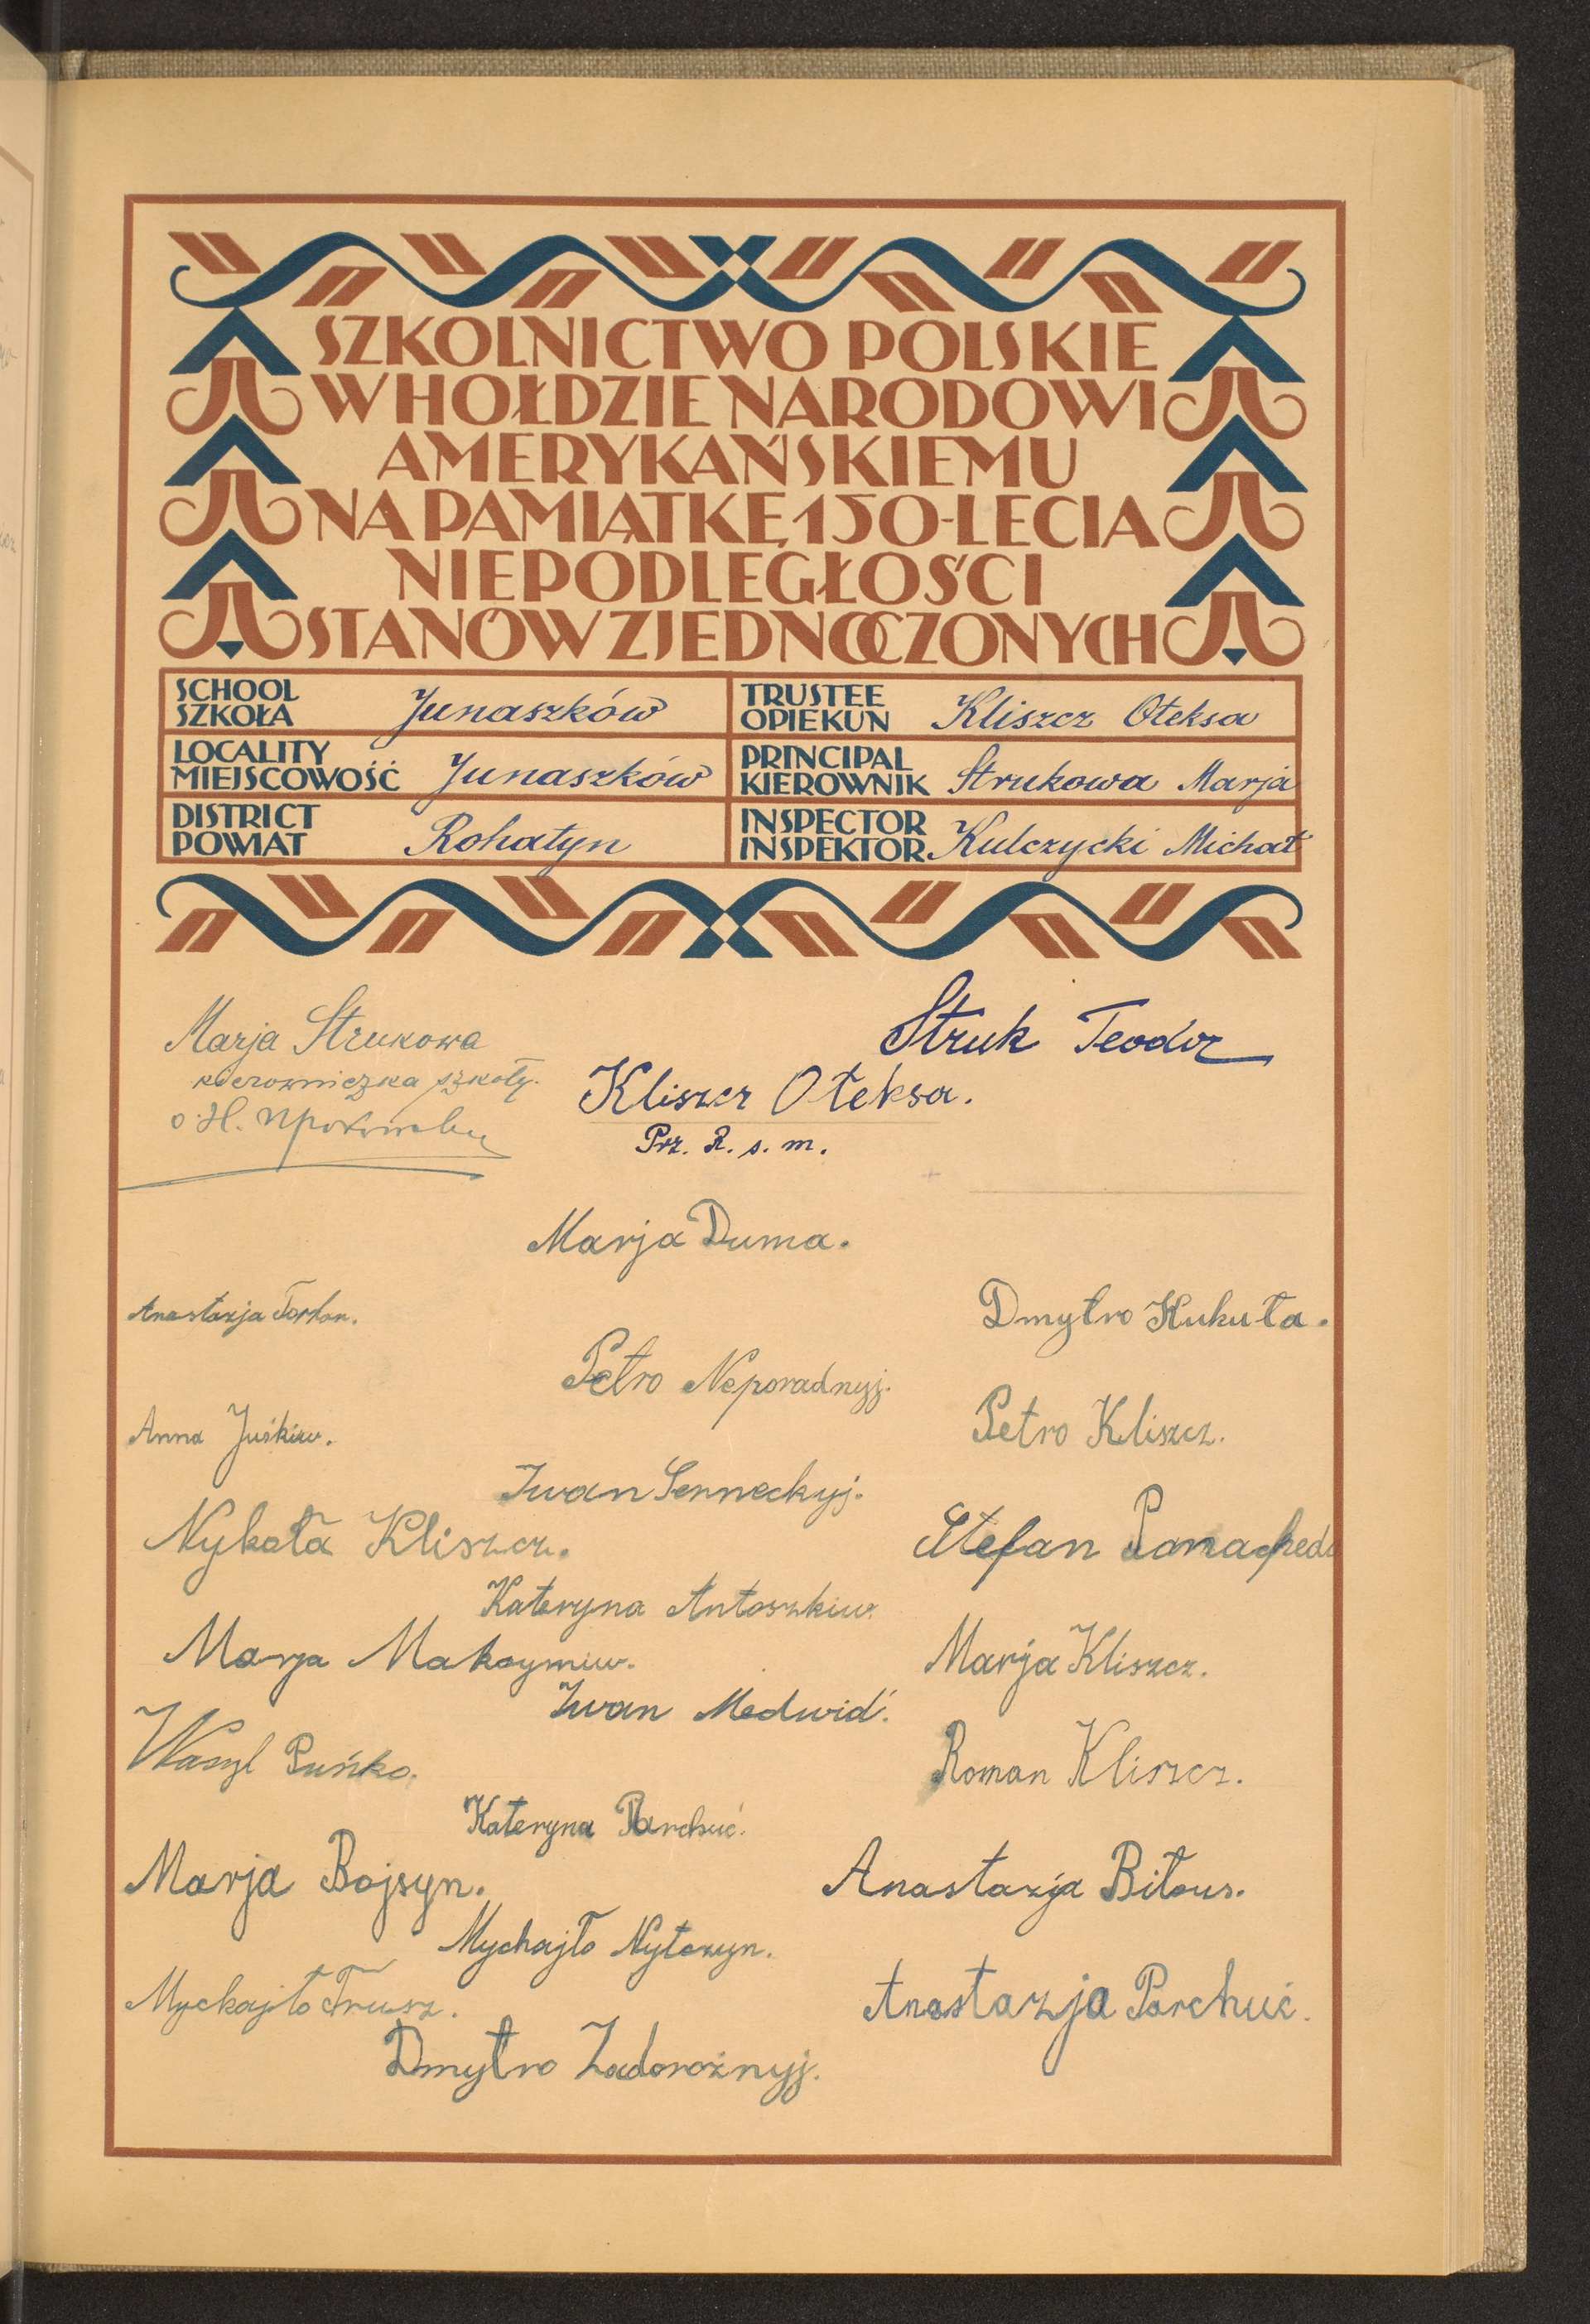 SZKOLNICTWO POLSKIE
W HOŁDZIE NARODOWI
AMERYKAŃSKIEMU
NA PAMIĄTKĘ 150-LECIA
NIEPODLEGŁOŚCI
STANÓW ZJEDNOCZONYCH
SCHOOL
SZKOŁA Junaszków
TRUSTEE
OPIEKUN Kliszcz Ołeksa
LOCALITY
MIEJSCOWOŚĆ Junaszków
PRINCIPAL
KIEROWNIK Strukowa Marja
DISTRICT
POWIAT Rohatyn
INSPECTOR
INSPEKTOR Kulczycki Michał
Struk Teodor
Marja Strukowa
kierowniczka szkoły.
Kliszcz Ołeksa.
Prz. R. s. m.
Marja Duma.
Anastazja
Dmytro Kukuła.
Petro Neporadnyj.
Anna Juśkiw.
Petro Kliszcz.
Iwan Senneckyj.
Nykoła Kliszcz.
Stefan
Kateryna Antoszkiw.
Marja Maksymiw.
Marja Kliszcz.
Iwan Medwid'.
Wasyl Puńko.
Roman Kliszcz.
Kateryna Parchuć.
Marja Bojsyn.
Anastazja Biłous.
Mychajło Nytczyn.
Mychajło Trusz.
Anastazja Parchuć.
Dmytro Zadorożnyj.